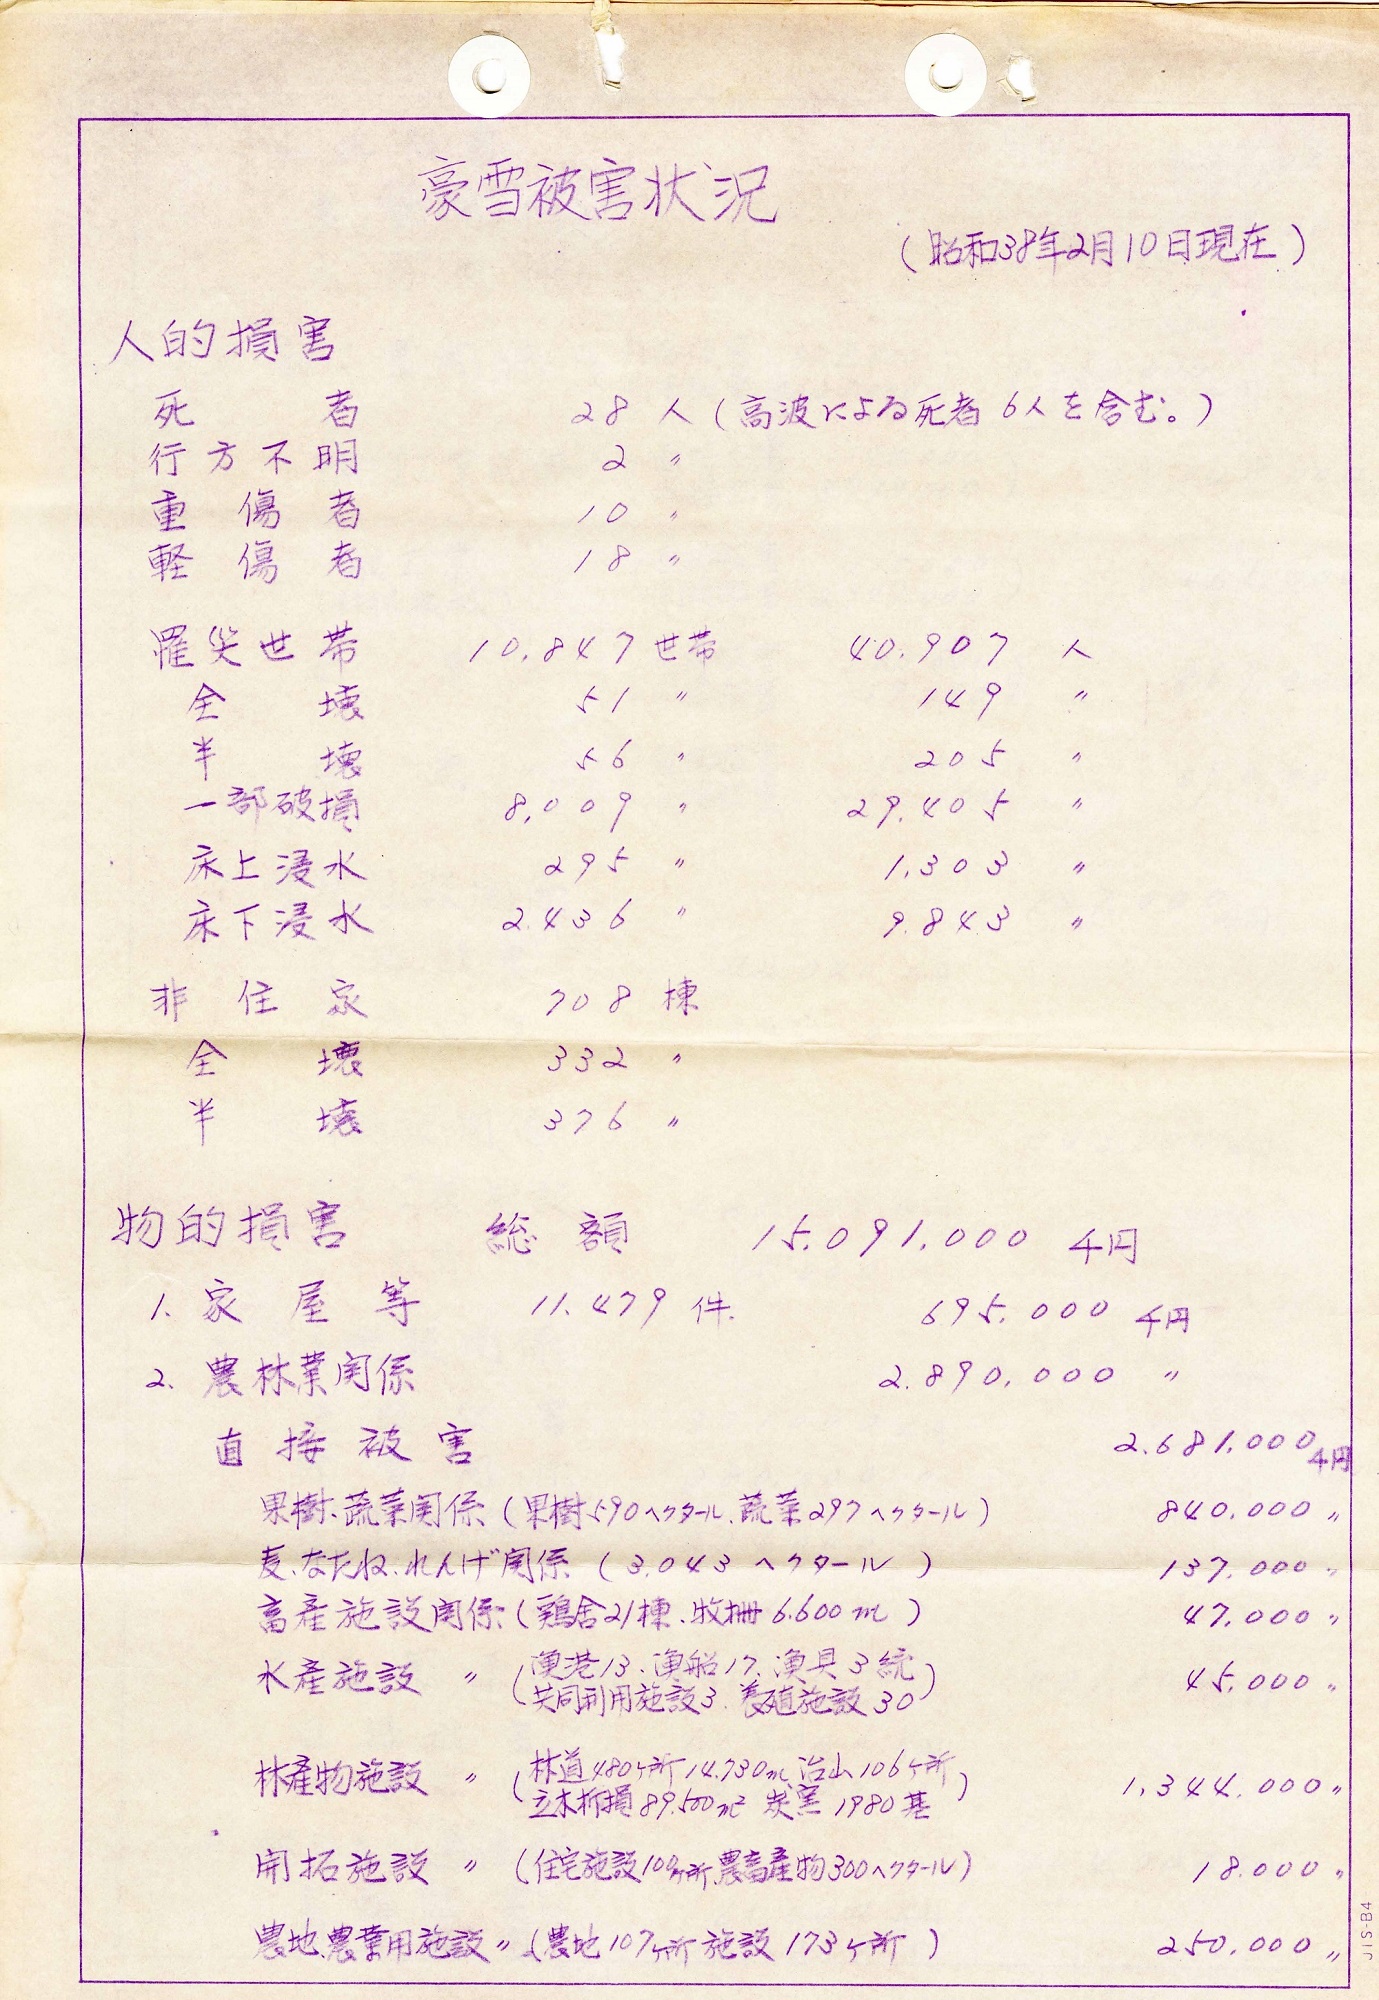 豪雪被害状況
(昭和38年2月10日現在)
人的損害
死者 28人(高波による死者6人を含む。)
行方不明 2〃
重傷者 10〃
軽傷者 18〃
罹災世帯 10,847世帯 40,907人
全壊 51〃 149〃
半壊 56〃 205〃
一部破損 8,009〃 29,405〃
床上浸水 295〃 1,303〃
床下浸水 2,436〃 9,843〃
非住家 708棟
全壊 332〃
半壊 376〃
物的損害 総額 15,091,000千円
1. 家屋等 11,479件 695,000千円
2. 農林業関係 2,890,000〃
直接被害 2,681,000千円
果樹、蔬菜関係(果樹590ヘクタール、蔬菜297ヘクタール) 840,000〃
麦、なたね、れんげ関係(3,043ヘクタール) 137,000〃
畜産施設関係(鶏舎21棟、牧柵6,600m) 47,000〃
水産施設〃(漁港13、漁船17、漁具3統
共同利用施設3、養殖施設30) 45,000〃
林産物施設〃(林道480ヶ所14,730m、治山106ヶ所
立木折損89,500m² 炭窯1980基) 1,344,000〃
開拓施設〃(住宅施設100ヶ所、農畜産物300ヘクタール) 18,000〃
農地、農業用施設〃(農地107ヶ所 施設173ヶ所) 250,000〃
JIS-B4